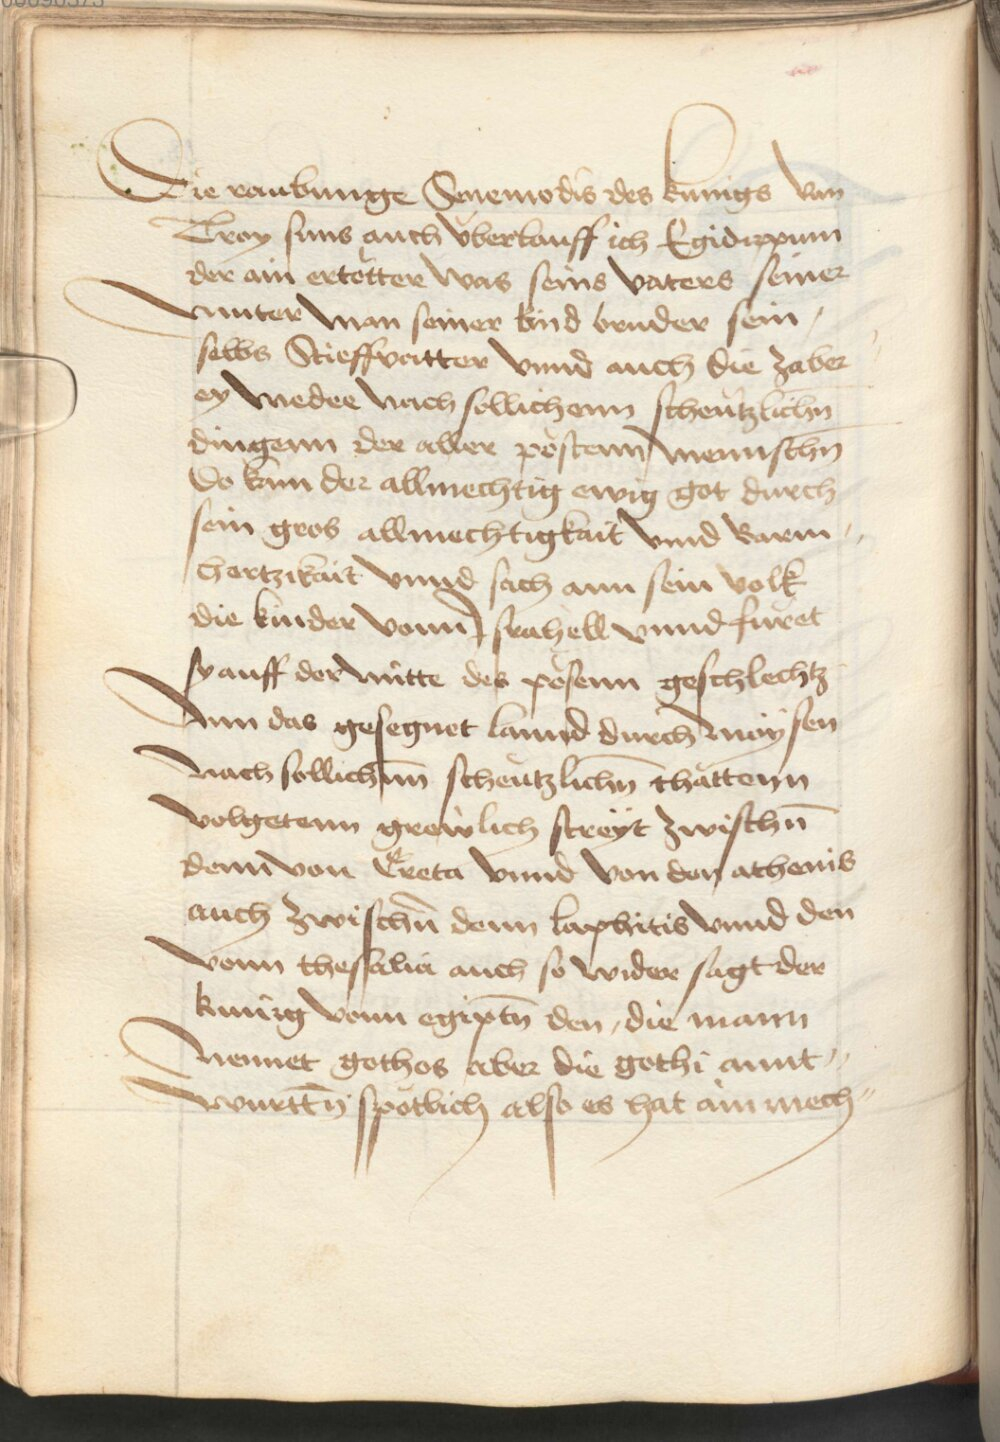 Die raubunge Senemodis des kunigs van
Troy suns auch vberlauff ich Egidippum
der ain ertötter was seins vaters seiner
muter man seiner kind bruder sein
selbs Stieffvatter vnnd auch die zaber
ey medee nach sollichenn scheützlichn
dingenn der aller pöstenn mennschn
Do kam der allmechtig ewig got durch
sein gros allmechtigkait vnnd Barm
hertzikait vnnd sach ann sein volk
die kinder vonn Israhell vnnd füret
sy auff der mitte des pösenn geschlechtz
Inn das gesegnet lannd durch moysen
Nach sollichnn scheützlichn thattenn
volgetenn grewlich streyt zwischn
denn von Creta vnnd von den athenis
auch zwischn denn laphitis vnnd den
vonn thessalia auch so wider sagt der
kunig vonn egiptn den die mann
Nennet gothos aber die gothi annt
wurttn spötlich also es hat ain mech